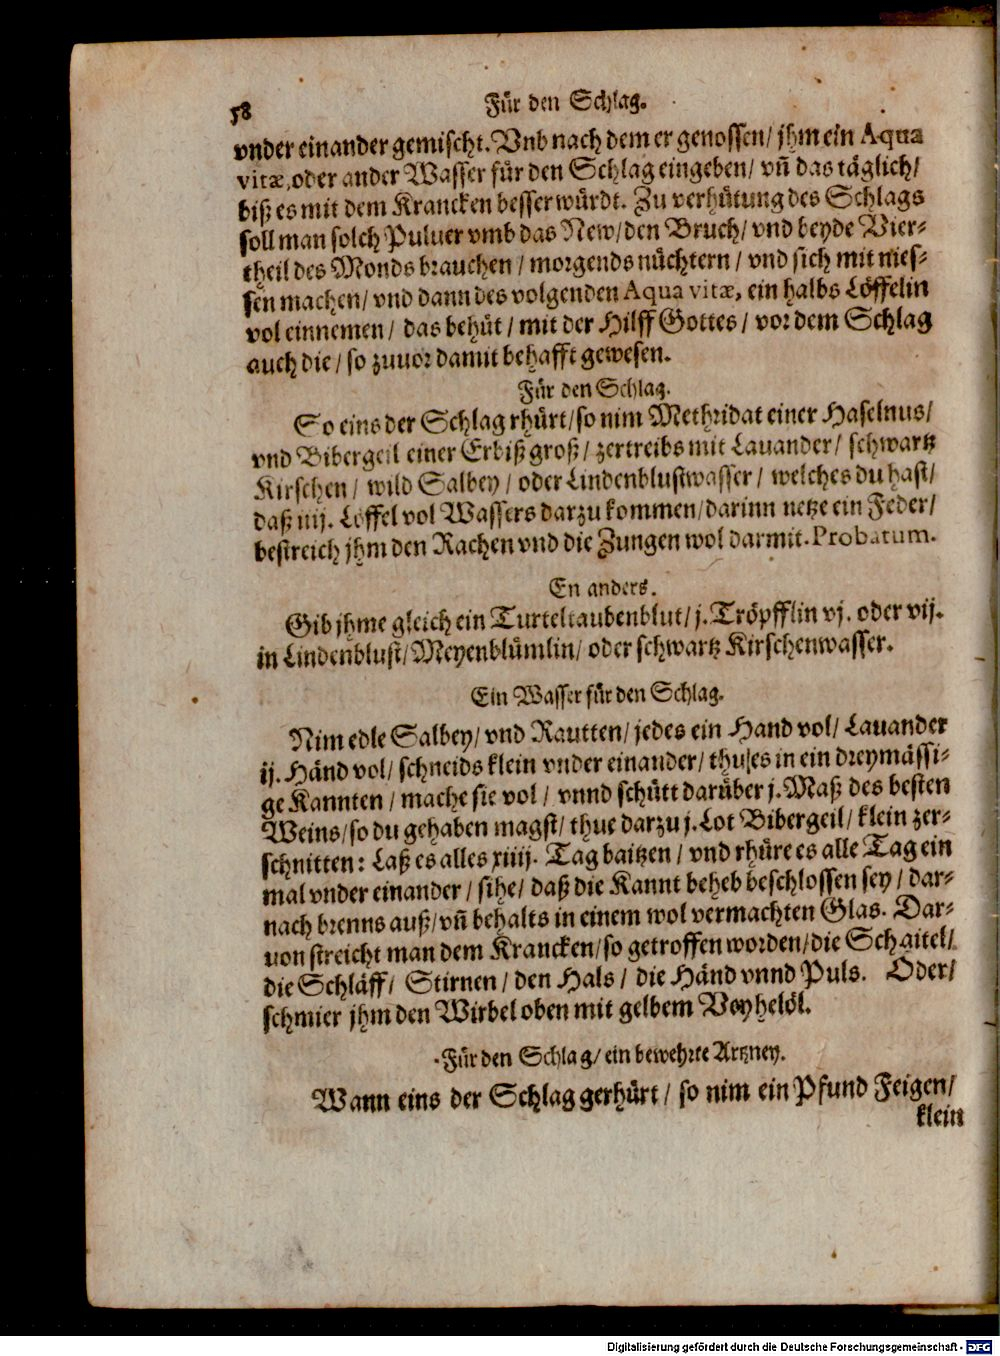 58
Für den Schlag.
vnder einander gemischt. Vnb nach dem er genossen/ jhm ein Aqua
vitæ, oder ander Wasser für den Schlag eingeben/ vñ das täglich/
biß es mit dem Krancken besser würdt. Zu verhütung des Schlags
soll man solch Puluer vmb das New/ den Bruch/ vnd beyde Vier-
theil des Monds brauchen / morgends nüchtern / vnd sich mit nies-
sen machen/ vnd dann des volgenden Aqua vitæ, ein halbs Löffelin
vol einnemen / das behüt / mit der Hilff Gottes / vor dem Schlag
auch die / so zuuor damit behafft gewesen.
Für den Schlag.
So eins der Schlag rhürt/ so nim Methridat einer Haselnus/
vnd Bibergeil einer Erbiß groß / zertreibs mit Lauander / schwartz
Kirschen / wild Salbey / oder Lindenblustwasser / welches du hast/
daß iiij. Löffel vol Wassers darzu kommen/ darinn netze ein Feder/
bestreich jhm den Rachen vnd die Zungen wol darmit. Probatum.
En anders.
Gib jhme gleich ein Turteltaubenblut/ j. Tröpfflin vj. oder vij.
in Lindenblust/ Meyenblümlin/ oder schwartz Kirschenwasser.
Ein Wasser für den Schlag.
Nim edle Salbey/ vnd Rautten/ jedes ein Hand vol/ Lauander
ij. Händ vol/ schneids klein vnder einander/ thu es in ein dreymässi-
ge Kannten / mache sie vol / vnnd schütt darüber j. Maß des besten
Weins/ so du gehaben magst/ thue darzu j. Lot Bibergeil/ klein zer-
schnitten: Laß es alles xiiij. Tag baitzen / vnd rhüre es alle Tag ein
mal vnder einander / sihe/ daß die Kannt beheb beschlossen sey / dar-
nach brenns auß/ vñ behalts in einem wol vermachten Glas. Dar-
uon streicht man dem Krancken/ so getroffen worden/ die Schaitel/
die Schläff/ Stirnen / den Hals / die Händ vnnd Puls. Oder/
schmier jhm den Wirbel oben mit gelbem Veyhelöl.
Für den Schlag/ ein bewehrte Artzney.
Wann eins der Schlag gerhürt / so nim ein Pfund Feigen/
klein
Digitalisierung gefördert durch die Deutsche Forschungsgemeinschaft - DFG